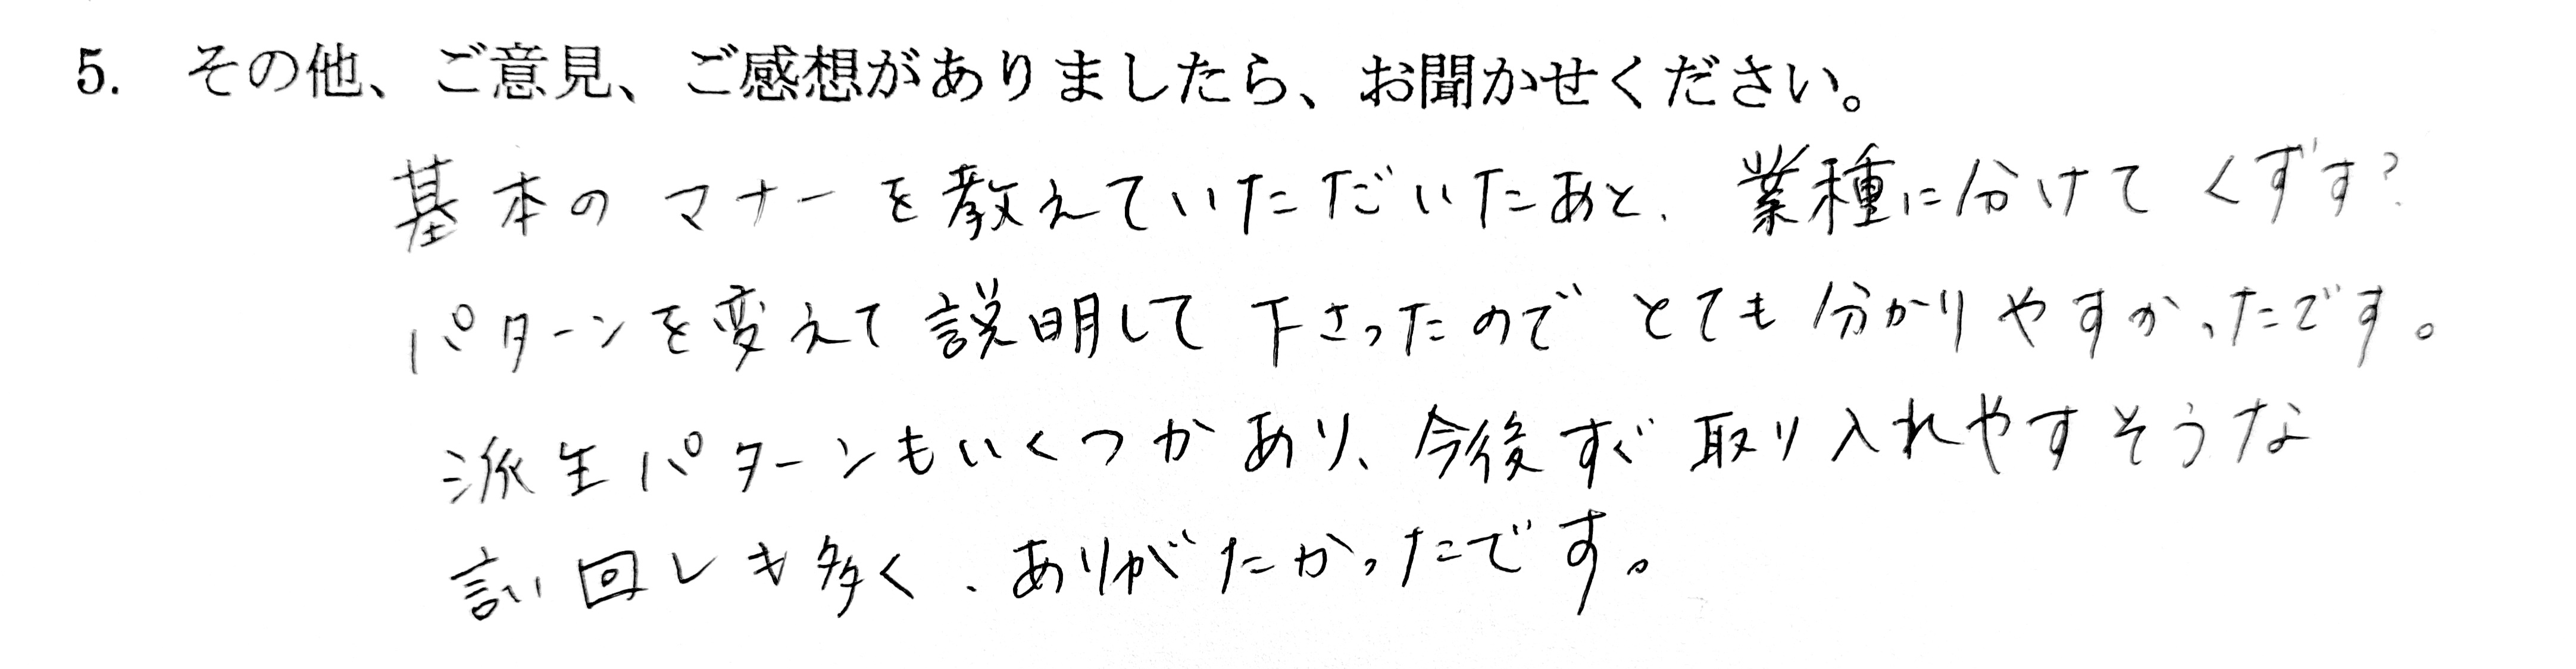 5. その他、ご意見、ご感想がありましたら、お聞かせください。
基本のマナーを教えていただいたあと、業種に分けてくずす?
パターンを変えて説明して下さったのでとても分かりやすかったです。
派生パターンもいくつかあり、今後すぐ取り入れやすそうな
言い回しも多く、ありがたかったです。